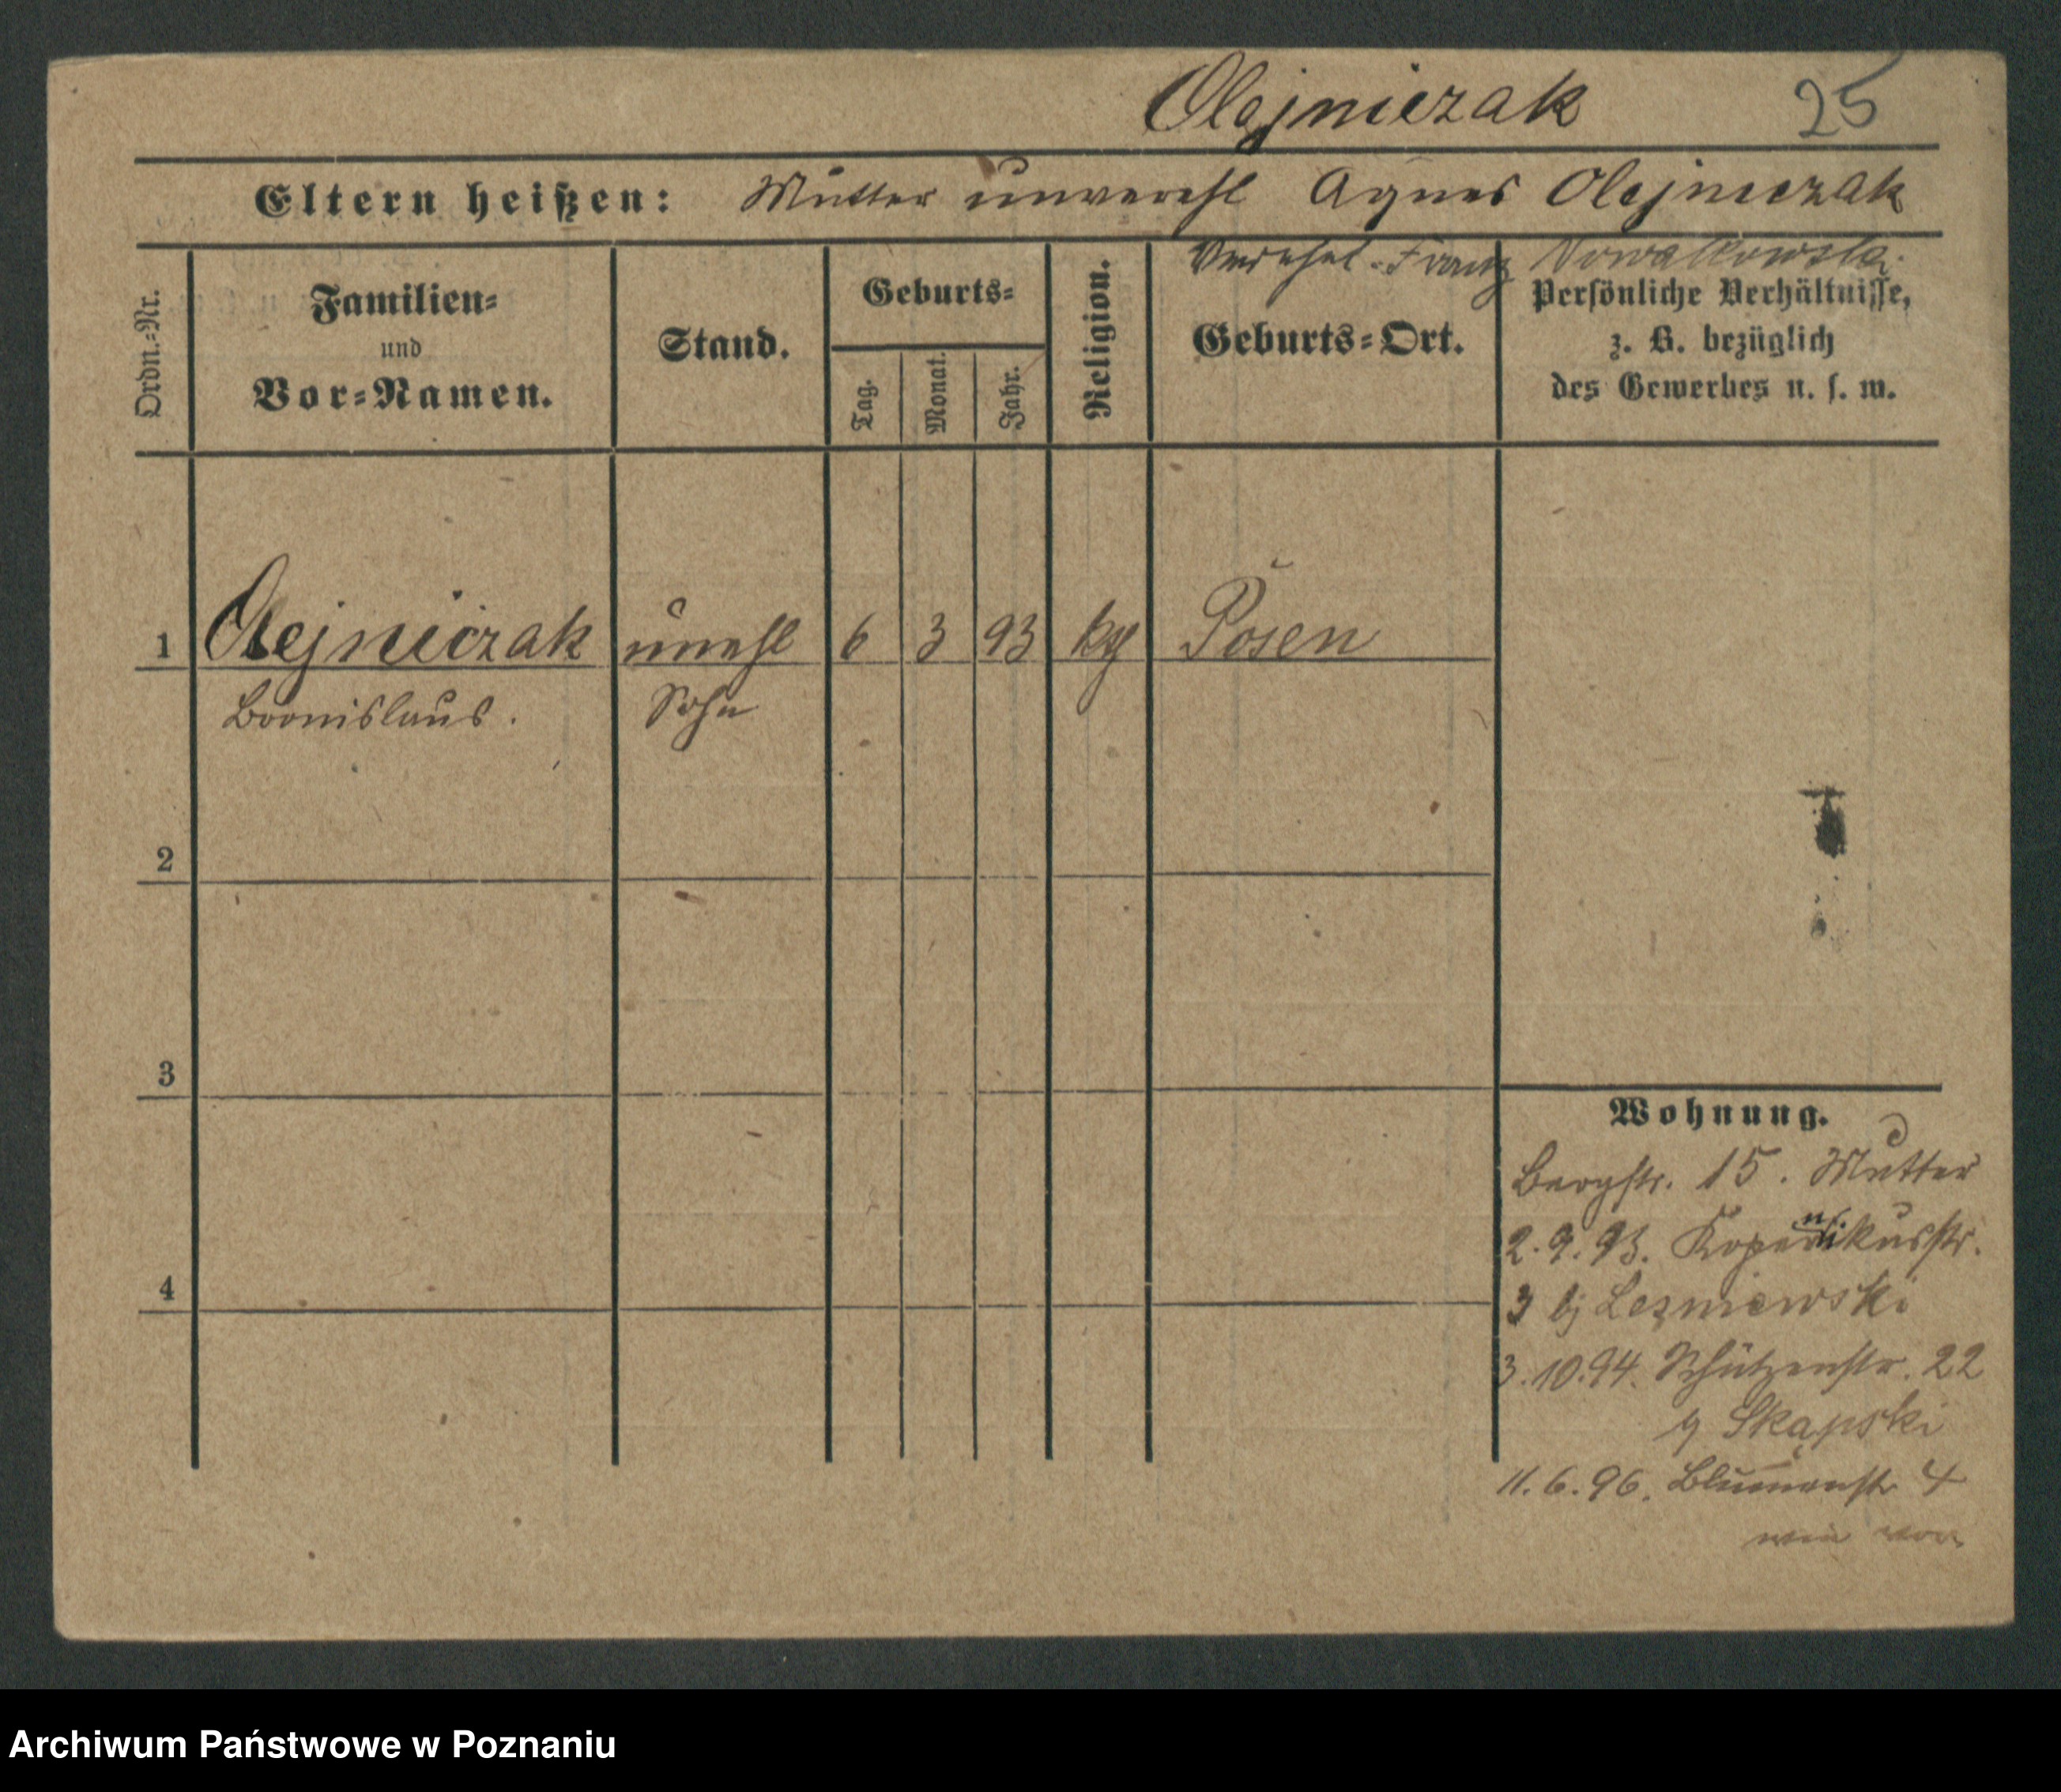 Olejniczak 25
Eltern heißen: Mutter unverehl Agnes Olejniczak
Verehel. Franz Nowatkowski.
Ordn.-Nr.
Familien-
und
Vor-Namen.
Stand.
Geburts-
Tag.
Monat.
Jahr.
Religion.
Geburts-Ort.
Persönliche Verhältnisse,
z. B. bezüglich
des Gewerbes u. s. w.
1 Olejniczak unehl 6 3 93 Posen
Bronislaus. Sohn
2
3
4
Wohnung.
Bergstr. 15. Mutter
2.9.93. Kopernikusstr.
3 bj Lesniewski
3.10.94. Schützenstr. 22
Skąpski
11.6.96. Blumenstr 4
wie vor
Archiwum Państwowe w Poznaniu